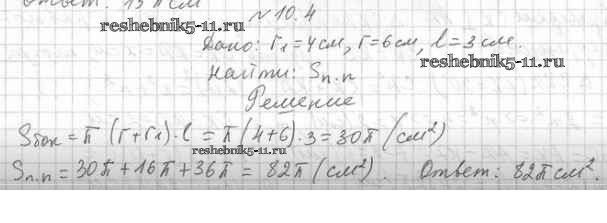 Ответ: 15π см
№10.4
reshebnik5-11.ru
Дано: r₁=4см, r=6см, l=3см.
reshebnik5-11.ru
Найти: Sп.п
Решение
Sбок=π(r+r₁)·l=π(4+6)·3=30π(см²)
reshebnik5-11.ru
Sп.п=30π+16π+36π=82π(см²). Ответ: 82πсм².